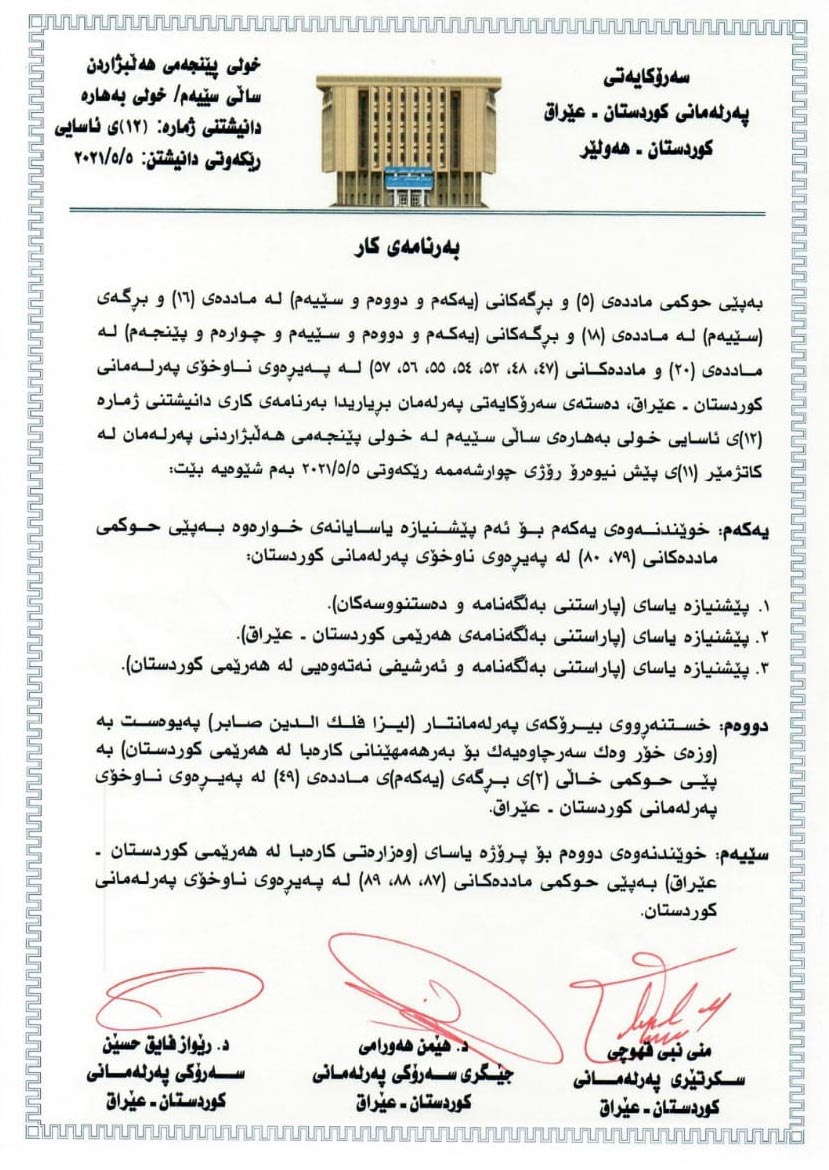 سەرۆکایەتی
پەرلەمانی کوردستان ـ عێراق
کوردستان ـ هەولێر
خولی پێنجەمی هەڵبژاردن
ساڵی سێیەم/ خولی بەهارە
دانیشتنی ژمارە: (١٢)ی ئاسایی
رێکەوتی دانیشتن: ٢٠٢١/٥/٥
بەرنامەی کار
بەپێی حوکمی ماددەی (٥) و بڕگەکانی (یەکەم و دووەم و سێیەم) لە ماددەی (١٦) و بڕگەی
(سێیەم) لە ماددەی (١٨) و بڕگەکانی (یەکەم و دووەم و سێیەم و چوارەم و پێنجەم) لە
ماددەی (٢٠) و ماددەکانی (٤٧، ٤٨، ٥٢، ٥٤، ٥٥، ٥٦، ٥٧) لە پەیڕەوی ناوخۆی پەرلەمانی
کوردستان ـ عێراق، دەستەی سەرۆکایەتی پەرلەمان بڕیاریدا بەرنامەی کاری دانیشتنی ژمارە
(١٢)ی ئاسایی خولی بەهارەی ساڵی سێیەم لە خولی پێنجەمی هەڵبژاردنی پەرلەمان لە
کاتژمێر (١١)ی پێش نیوەرۆ رۆژی چوارشەممە رێکەوتی ٢٠٢١/٥/٥ بەم شێوەیە بێت:
یەکەم: خوێندنەوەی یەکەم بۆ ئەم پێشنیازە یاسایانەی خوارەوە بەپێی حوکمی
ماددەکانی (٧٩، ٨٠) لە پەیڕەوی ناوخۆی پەرلەمانی کوردستان:
١. پێشنیازە یاسای (پاراستنی بەڵگەنامە و دەستنووسەکان).
٢. پێشنیازە یاسای (پاراستنی بەڵگەنامەی هەرێمی کوردستان ـ عێراق).
٣. پێشنیازە یاسای (پاراستنی بەڵگەنامە و ئەرشیفی نەتەوەیی لە هەرێمی کوردستان).
دووەم: خستنەڕووی بیرۆکەی پەرلەمانتار (لیزا فلك الدین صابر) پەیوەست بە
(وزەی خۆر وەك سەرچاوەیەك بۆ بەرهەمهێنانی کارەبا لە هەرێمی کوردستان) بە
پێی حوکمی خاڵی (٢)ی بڕگەی (یەکەم)ی ماددەی (٤٩) لە پەیڕەوی ناوخۆی
پەرلەمانی کوردستان ـ عێراق.
سێیەم: خوێندنەوەی دووەم بۆ پرۆژە یاسای (وەزارەتی کارەبا لە هەرێمی کوردستان ـ
عێراق) بەپێی حوکمی ماددەکانی (٨٧، ٨٨، ٨٩) لە پەیڕەوی ناوخۆی پەرلەمانی
کوردستان.
منی نبی قهوچی
سکرتێری پەرلەمانی
کوردستان ـ عێراق
د. هێمن هەورامی
جێگری سەرۆکی پەرلەمانی
کوردستان ـ عێراق
د. رێواز فایق حسێن
سەرۆکی پەرلەمانی
کوردستان ـ عێراق